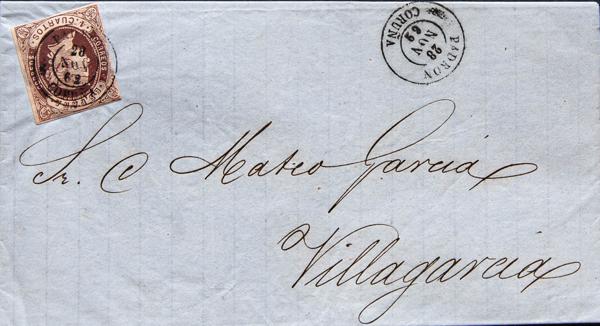 CORREOS
4 CUARTOS
28
NOV
62
PADRON
28
NOV
62
CORUÑA
Sr. C Mateo Garcia
Villagarcia